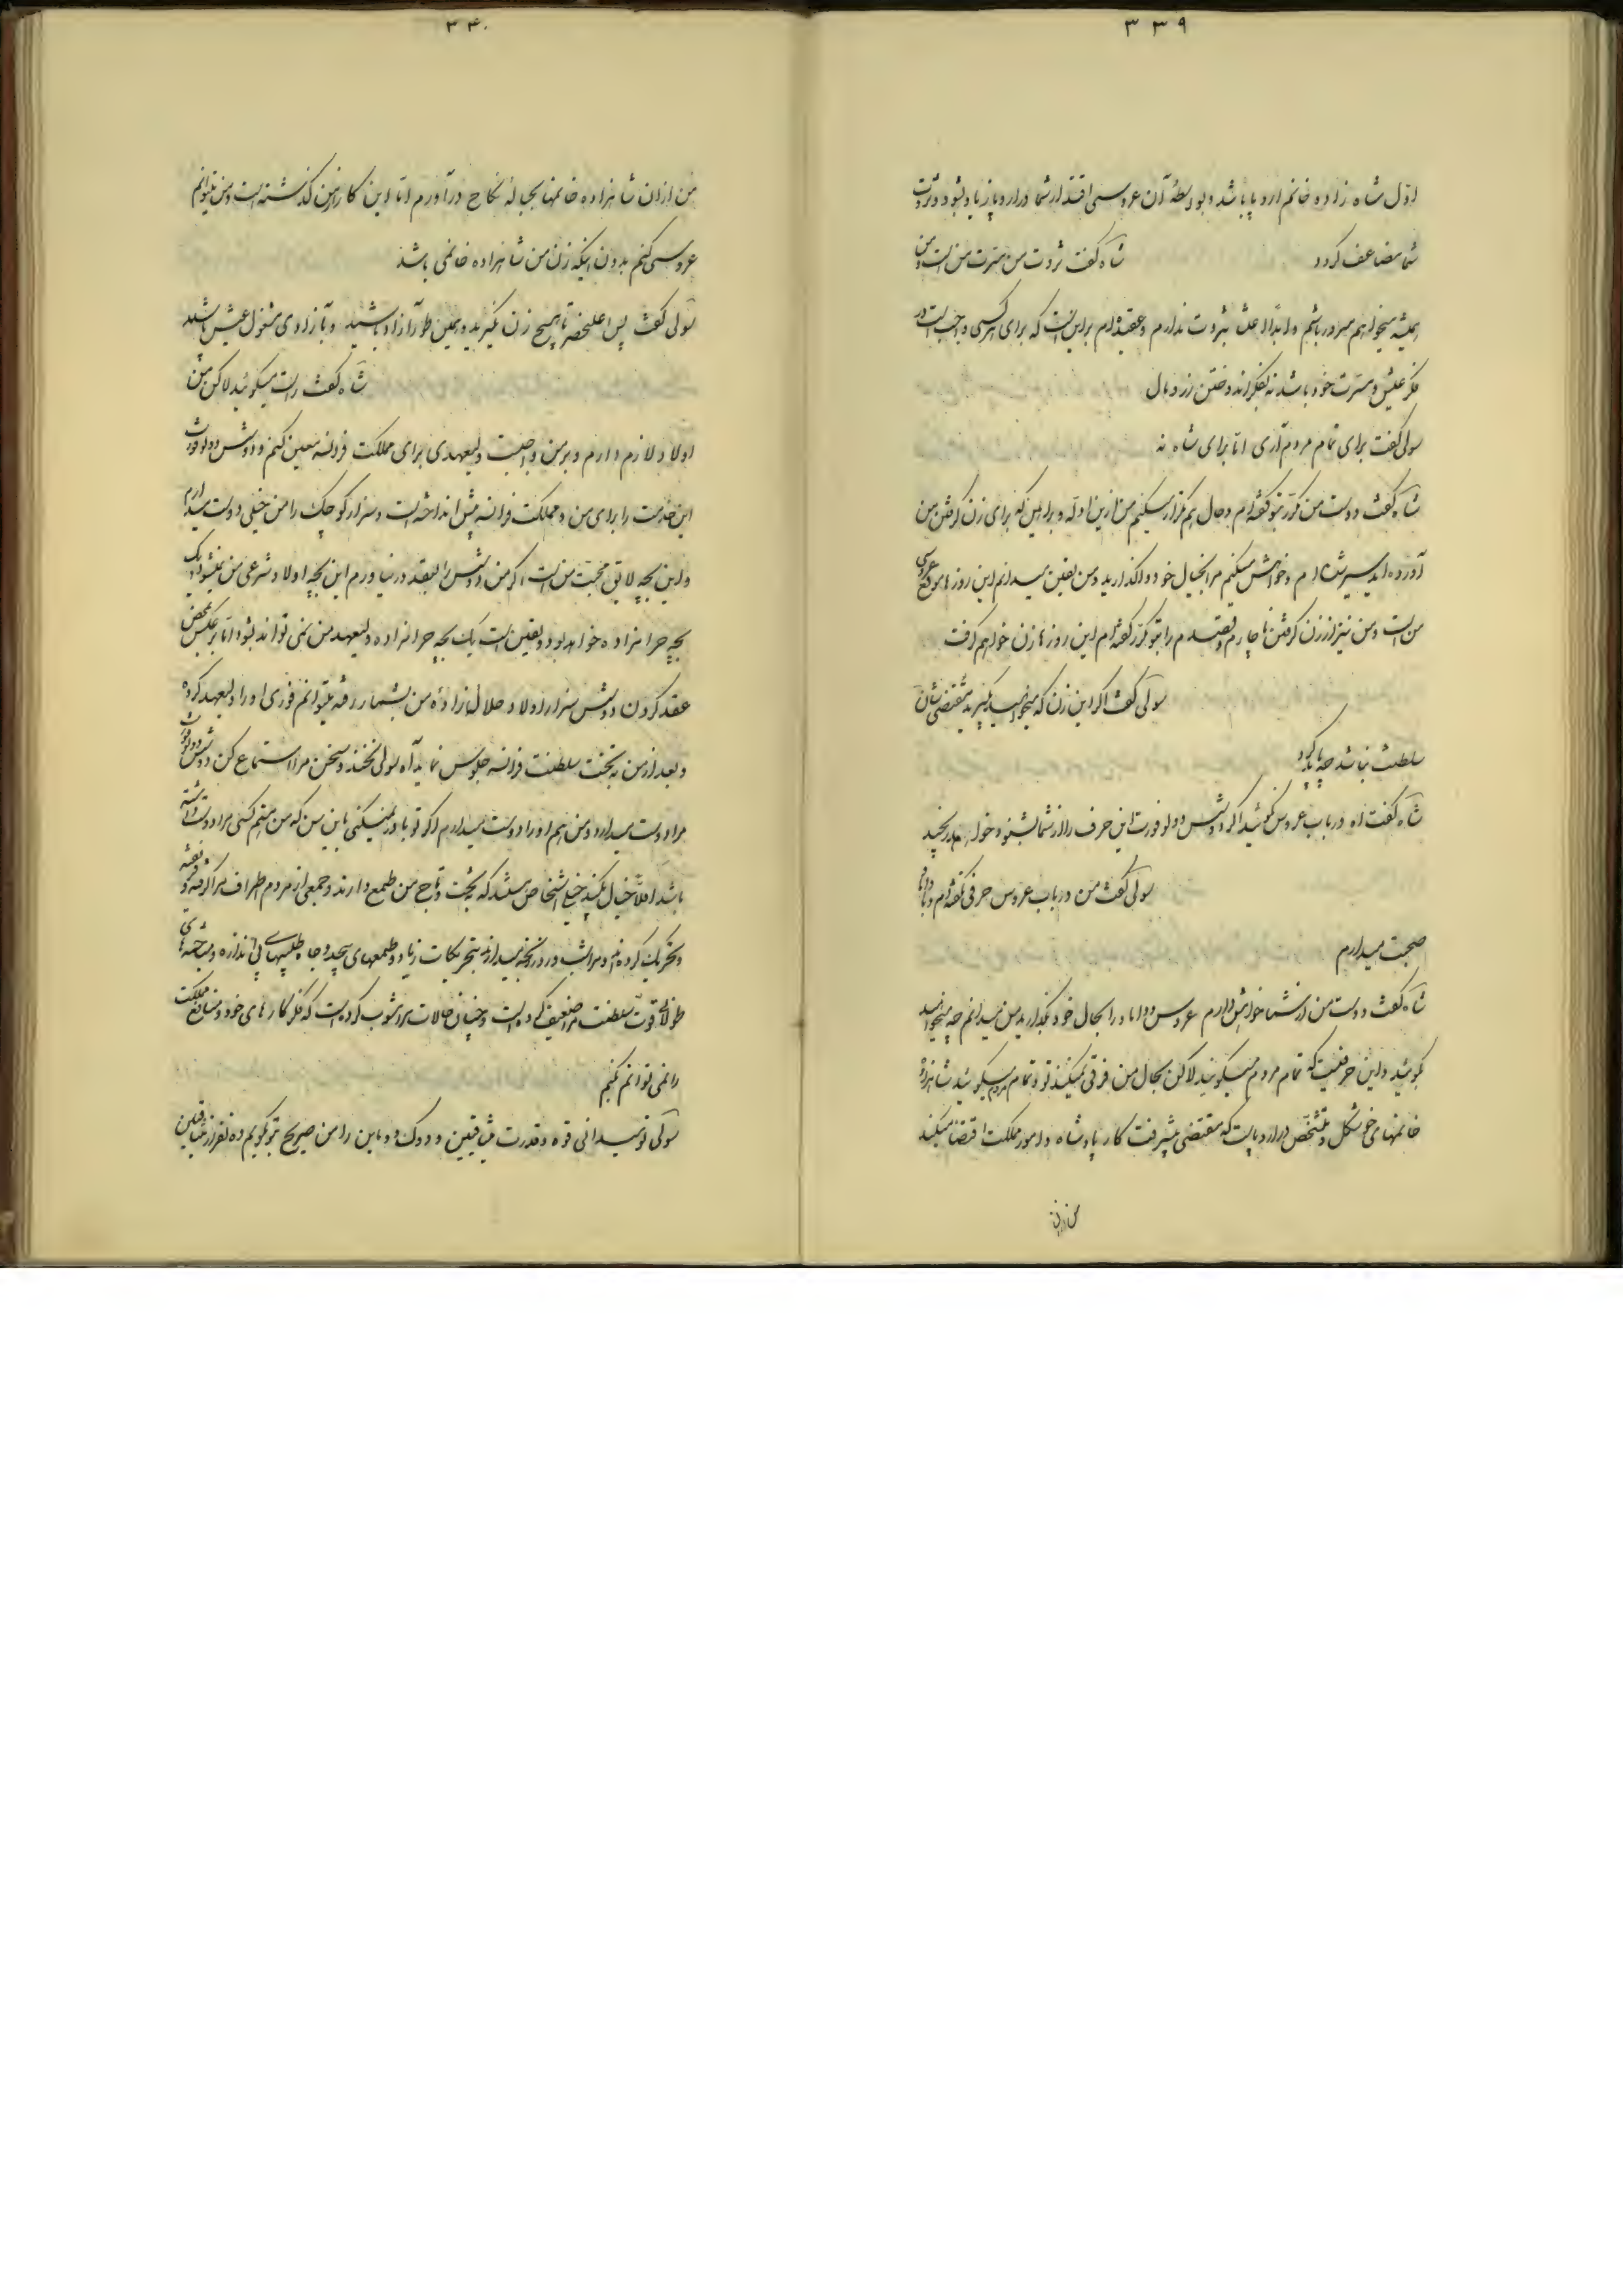 ۳۳۹
اول شاه زاده خانم اروپا باشد و بواسطهٔ آن عروسی اقتدار شما در اروپا زیاد بشود و ثروت
شما مضاعف گردد شاه گفت ثروت من مسرت من است و من
همیشه میخواهم مسرور باشم و ابداً بثروت ندارم و عقیده‌ام براین است که برای هر کسی واجب است در
فکر عیش و مسرت خود باشد نه بفکر اندوختن زر و مال
سولی گفت برای تمام مردم آری اما برای شاه نه
شاه گفت دوست من مکرر بتو گفته‌ام و حال هم تکرار میکنم من ازین ادله و براهین که برای زن گرفتن من
آورده‌اید سیر شده‌ام و خواهش میکنم مرا بخیال خود واگذارید و من یقین میدانم این روزها موقع عروسی
من است و من نیز از زن گرفتن ناچارم و قصدم را بتو مکرر گفته‌ام این روزها زن خواهم گرفت
سولی گفت اگر این زن که میخواهید بگیرید مقتضی شأن
سلطنت نباشد چه باید کرد
شاه گفت اه در باب عروس نگوئید اگر دوشس دوبوفورت این حرف را از شما بشنود خواهد رنجید
سولی گفت من در باب عروس حرفی نگفته‌ام و با داماد
صحبت میدارم
شاه گفت دوست من از شما خواهش دارم عروس و داماد را بحال خود بگذارید من میدانم چه میخواهید
بگوئید و این حرفیست که تمام مردم میگویند لاکن بحال من فرقی نمیکند تو و تمام مردم میگوئید شاهزاده
خانمهای خوشگل و مشخص در اروپا است که مقتضی پیشرفت کار پادشاه و امور مملکت اقتضا میکند
من از آن
۳۴۰
من از آن شاهزاده خانمها بحبالهٔ نکاح درآورم اما این کار از من گذشته است و من نمیتوانم
عروسی کنم بدون اینکه زن من شاهزاده خانمی باشد
سولی گفت پس اعلیحضرتا هیچ زن نگیرید و همین طور آزاد باشید و بآزادی مشغول عیش باشید
شاه گفت راست میگوئید لاکن من
اولاد لازم دارم و بر من واجبست ولیعهدی برای مملکت فرانسه معین کنم و دوشس دوبوفورت
این خدمت را برای من و مملکت فرانسه پیش انداخته است و سزار کوچک را من خیلی دوست میدارم
و این بچه لایق محبت من است اگر من دوشس را بعقد در نیاورم این بچه اولاد شرعی من نمیشود و یک
بچه حرامزاده خواهد بود و یقین است یک بچه حرامزاده ولیعهد من نمی تواند بشود اما برعکس بمحض
عقد کردن دوشس سزار اولاد حلال زادهٔ من بشمار رفته میتوانم فوری او را ولیعهد کرده
و بعد از من به تخت سلطنت فرانسه جلوس نماید آه سولی نخند و سخن مرا استماع کن دوشس دوبوفورت
مرا دوست میدارد و من هم او را دوست میدارم اگر تو باور نمیکنی باین سن که من هستم کسی مرا دوست داشته
باشد اقلاً خیال بکنید خیلی اشخاص هستند که بتخت و تاج من طمع دارند و جمعی از مردم اطراف مرا گرفته
و تحریک کرده‌اند و مرا شب و روز رنجه میدارند بتحریکات زیاد و طمعهای بیحد و جاه طلبیهای بی اندازه و مباحثه‌های
طولانی قوت سلطنت مرا ضعیف کرده است و چنان حالات مرا مشوب کرده است که فکر کارهای خود و منافع مملکت
را نمی توانم بکنم
سولی تو میدانی قوه و قدرت و دوک را من صریح بتو بگویم ده نفر از